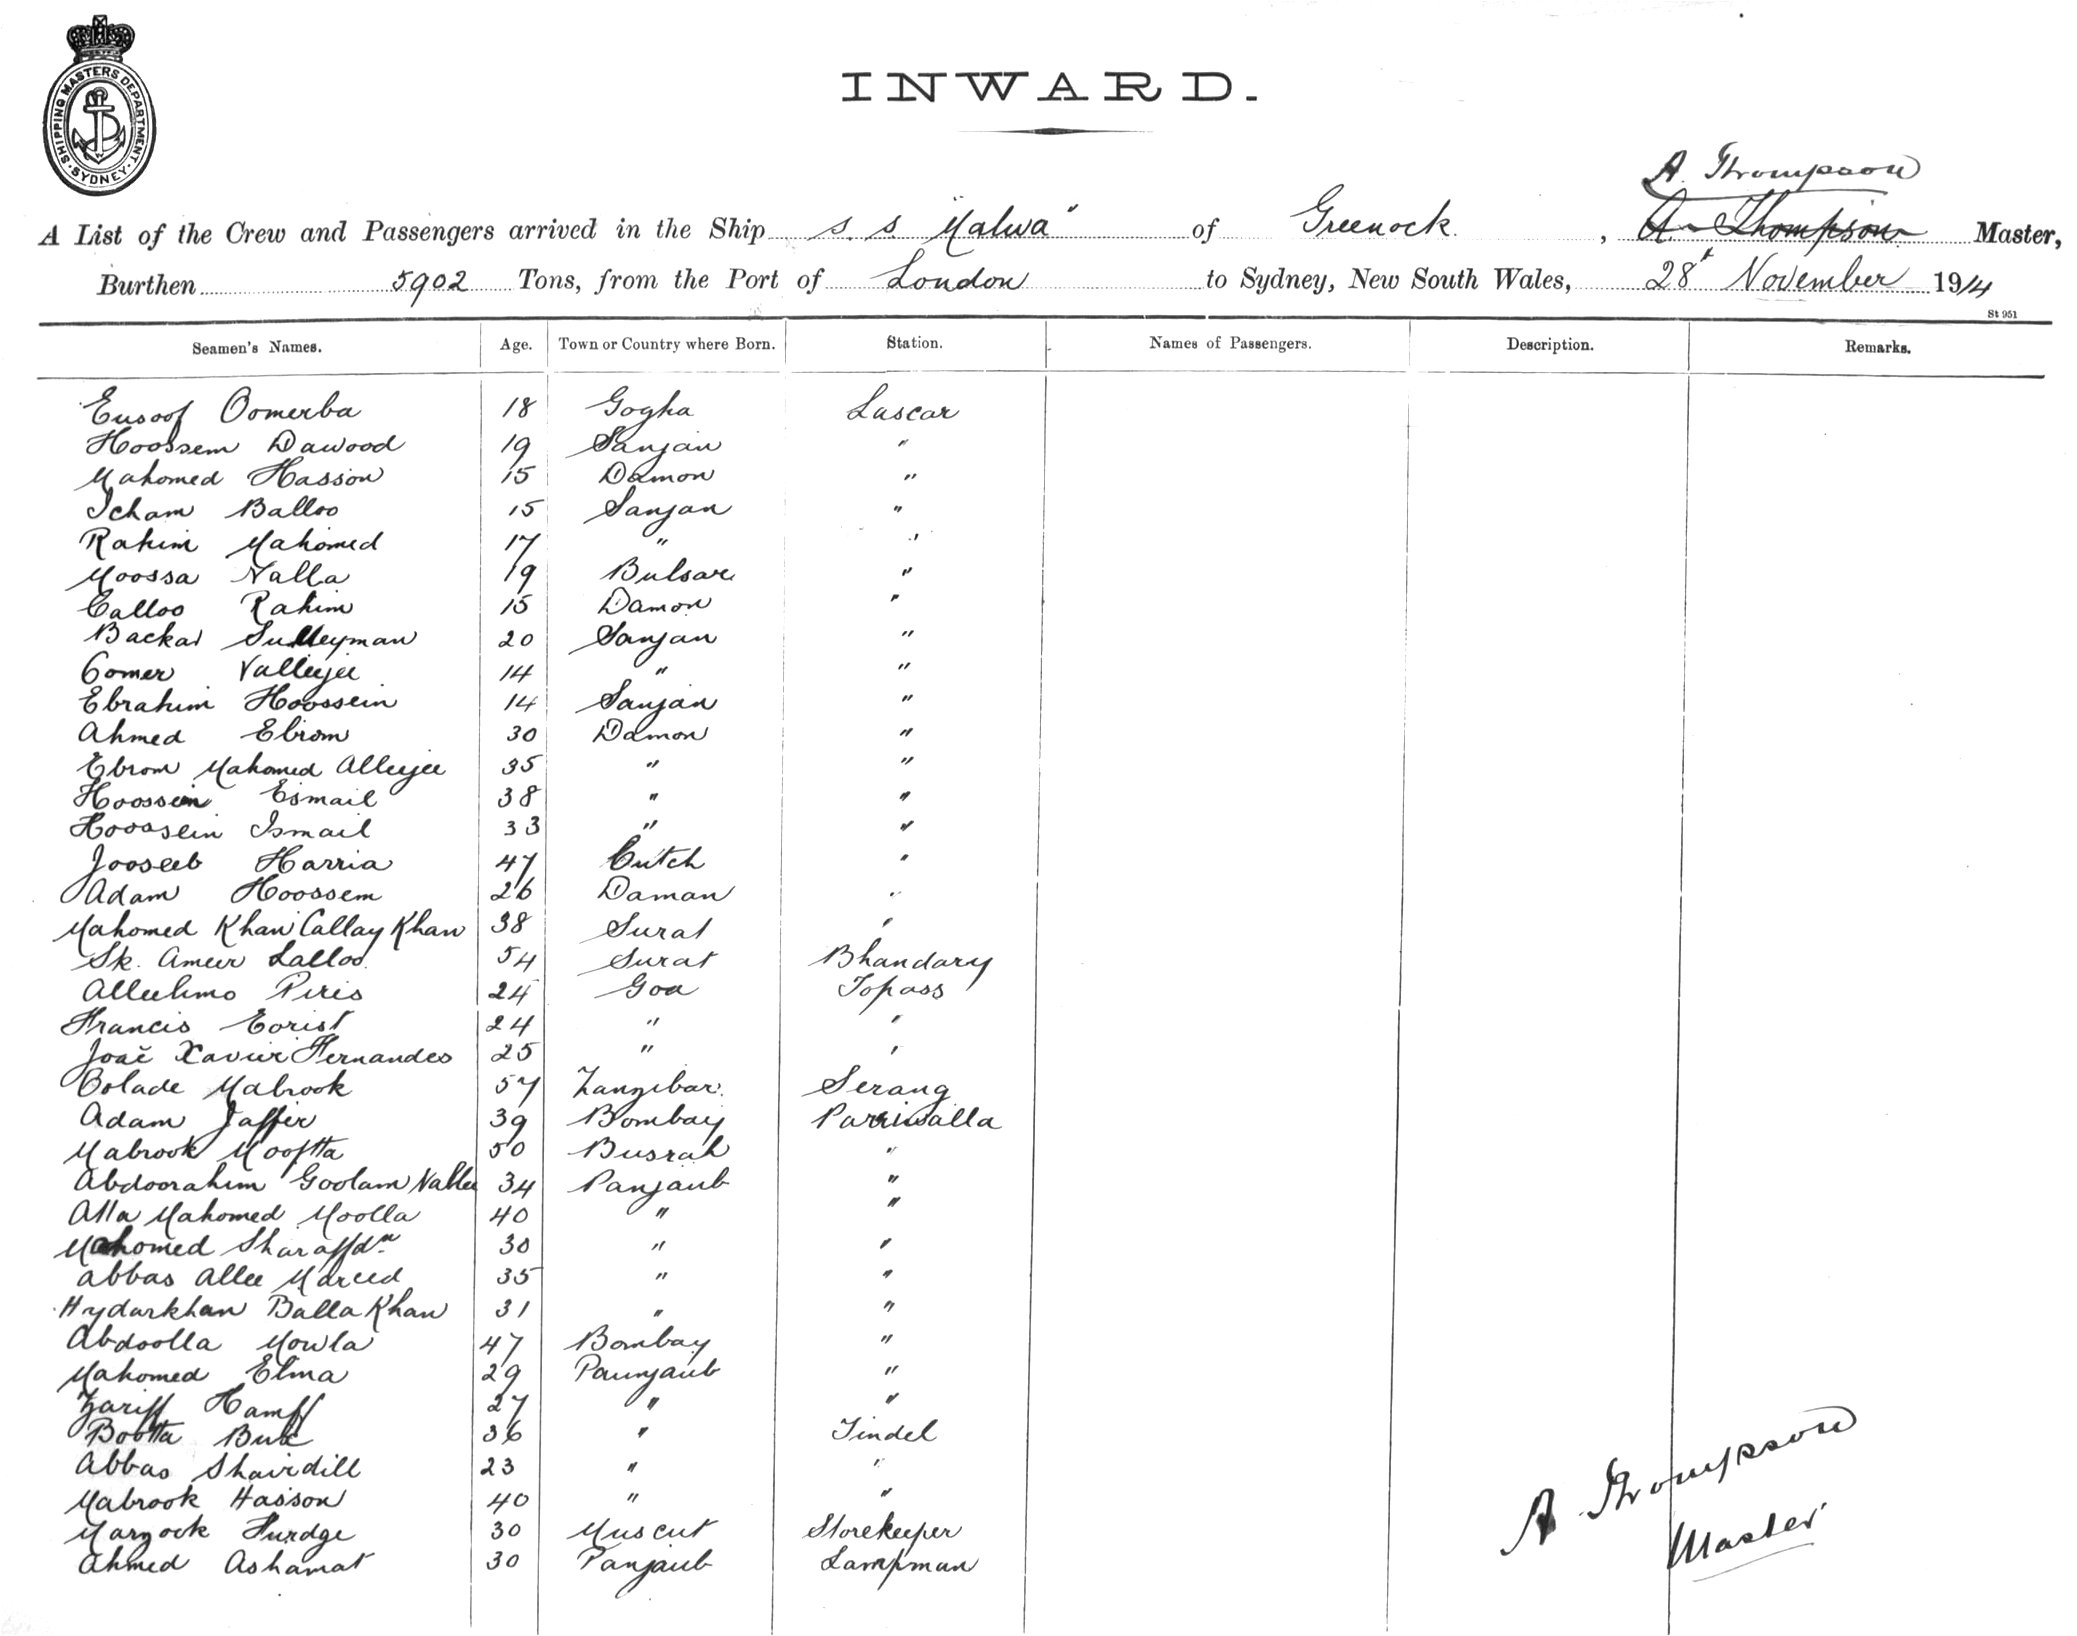 SHIPPING MASTERS DEPARTMENT. SYDNEY.
INWARD.
A. Thompson
A List of the Crew and Passengers arrived in the Ship S. S. "Malwa" of Greenock, A. Thompson Master,
Burthen 5902 Tons, from the Port of London to Sydney, New South Wales, 28t November 1914
St 951
Seamen's Names. Age. Town or Country where Born. Station. Names of Passengers. Description. Remarks.
Eusoof Oomerba 18 Gogha Lascar
Hoossem Dawood 19 Sanjan "
Mahomed Hasson 15 Damon "
Icham Balloo 15 Sanjan "
Rahim Mahomed 17 " "
Moossa Nalla 19 Bulsar "
Calloo Rahim 15 Damon "
Backar Sulleyman 20 Sanjan "
Oomer Valleejee 14 " "
Ebrahim Hoossein 14 Sanjan "
Ahmed Ebrom 30 Damon "
Ebrom Mahomed Alleejee 35 " "
Hoossein Esmail 38 " "
Hoossein Ismail 33 " "
Jooseeb Harria 47 Cutch "
Adam Hoossem 26 Daman "
Mahomed Khan Callay Khan 38 Surat "
Sk. Ameer Lalloo 54 Surat Bhandary
Piris 24 Goa Topass
Francis 24 " "
Joaě Xavier Fernandes 25 " "
Mabrook 57 Zanzibar Serang
Adam Jaffer 39 Bombay
Mabrook Mooftta 50 Busrah "
Abdoorahim Goolam 34 Panjaub "
Atta Mahomed Moolla 40 " "
Mahomed Sharaffdn 30 " "
Abbas Allee Mareed 35 " "
Hydarkhan Balla Khan 31 " "
Abdoolla Mowla 47 Bombay "
Mahomed Elma 29 Paunjaub "
Zariff Hamff 27 " "
Bootta Bux 36 " Tindel
Abbas Shairdill 23 " "
Mabrook Hasson 40 " "
Marzook Furdge 30 Muscut Storekeeper
Ahmed Ashamat 30 Panjaub Lampman
A Thompson
Master